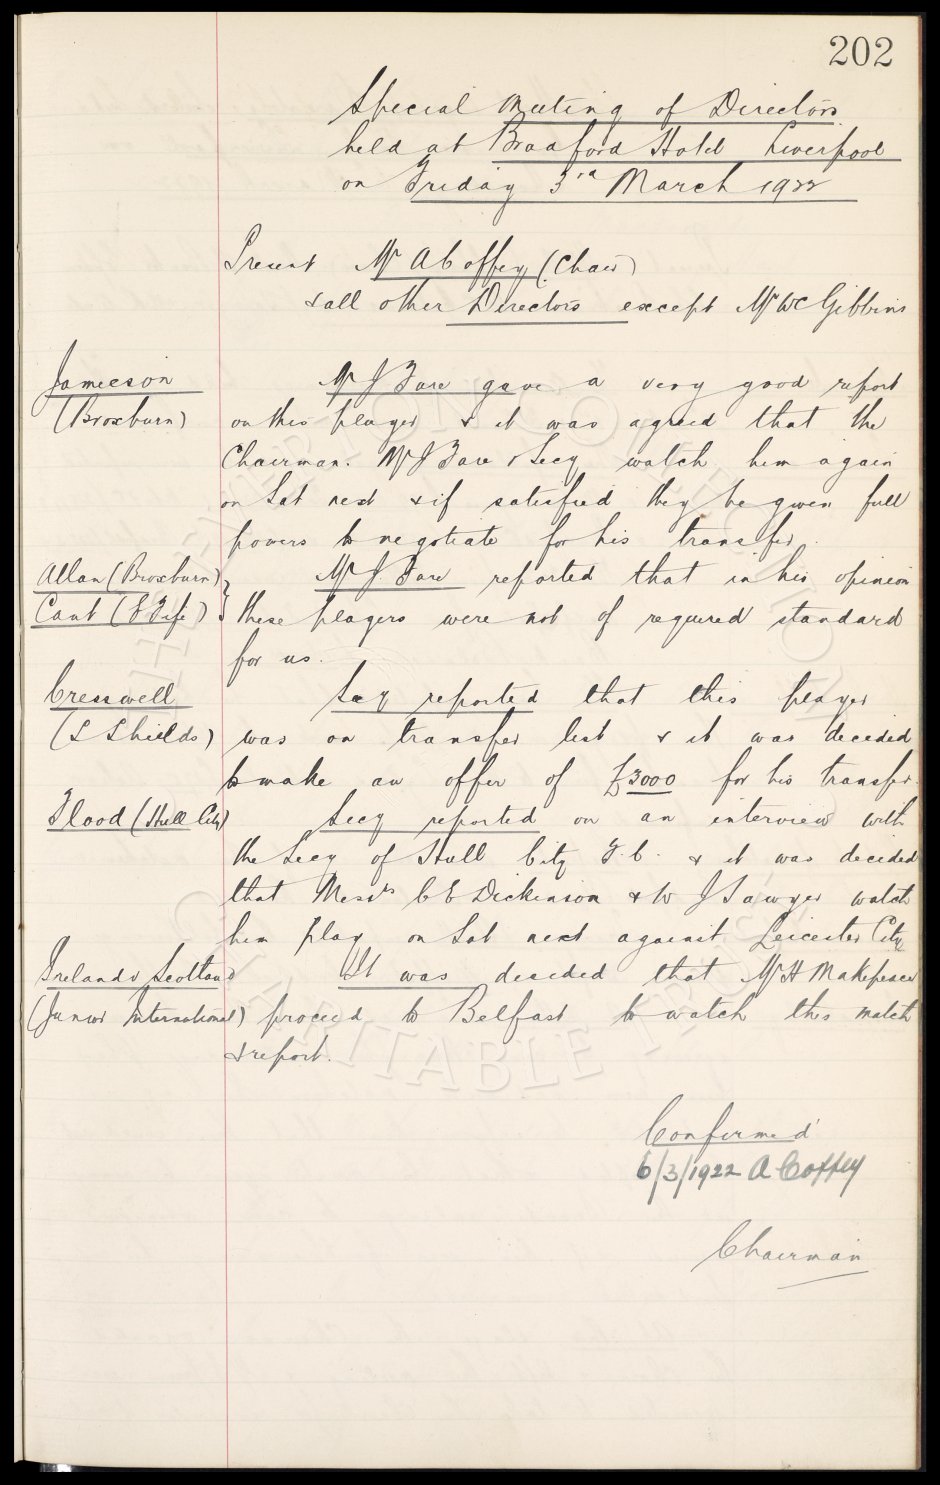 202
Special Meeting of Directors
held at Bradford Hotel Liverpool
on Friday 3rd March 1922
Present Mr A Coffey (Chair)
& all other Directors except Mr W C Gibbins
Jamieson
(Broxburn)
Mr J Fare gave a very good report
on this player & it was agreed that the
Chairman. Mr J Fare & Secy watch him again
on Sat next & if satisfied they be given full
powers to negotiate for his transfer.
Allan (Broxburn)
Cant (E Fife)
Mr J. Fare reported that in his opinion
these players were not of required standard
for us.
Cresswell
(S Shields)
Secy reported that this player
was on transfer list & it was decided
to make an offer of £3000 for his transfer.
Flood (Hull City)
Secy reported on an interview with
the Secy of Hull City F.C. & it was decided
that Messrs C E Dickinson & W J Sawyer watch
him play on Sat next against Leicester City
Ireland v Scotland
(Junior International)
It was decided that Mr H Makepeace
proceed to Belfast to watch this match
& report.
Confirmed
6/3/1922 A Coffey
Chairman
EVERTON COLLECTION
CHARITABLE TRUST